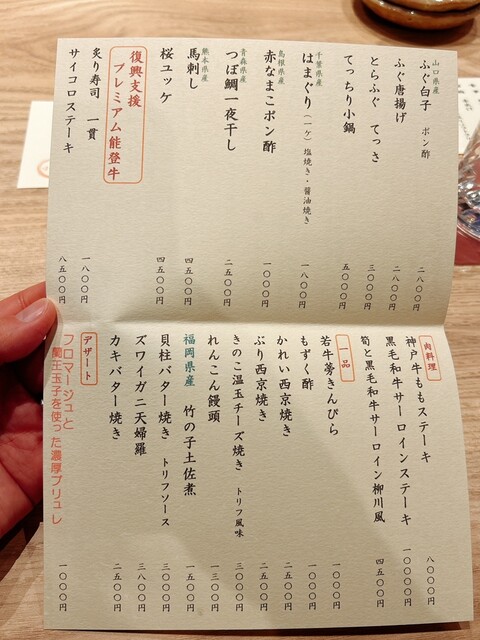 山口県産
ふぐ白子 ポン酢 二八〇〇円
ふぐ唐揚げ 二八〇〇円
とらふぐ てっさ 三〇〇〇円
てっちり小鍋 五〇〇〇円
千葉県産
はまぐり（一ケ）塩焼き・醤油焼き 一八〇〇円
島根県産
赤なまこポン酢 一〇〇〇円
青森県産
つぼ鯛一夜干し 二五〇〇円
熊本県産
馬刺し 四五〇〇円
桜ユッケ 四五〇〇円
復興支援
プレミアム能登牛
炙り寿司 一貫 一八〇〇円
サイコロステーキ 八五〇〇円
肉料理
神戸牛ももステーキ 八〇〇〇円
黒毛和牛サーロインステーキ 一〇〇〇〇円
筍と黒毛和牛サーロイン柳川風 四五〇〇円
一品
若牛蒡きんぴら 一〇〇〇円
もずく酢 一〇〇〇円
かれい西京焼き 二五〇〇円
ぶり西京焼き 二五〇〇円
きのこ温玉チーズ焼き トリフ風味 三〇〇〇円
れんこん饅頭 一三〇〇円
福岡県産 竹の子土佐煮 一五〇〇円
貝柱バター焼き トリフソース 三〇〇〇円
ズワイガニ天婦羅 三八〇〇円
カキバター焼き 二五〇〇円
デザート
フロマージュと
蘭王玉子を使った濃厚ブリュレ 一〇〇〇円